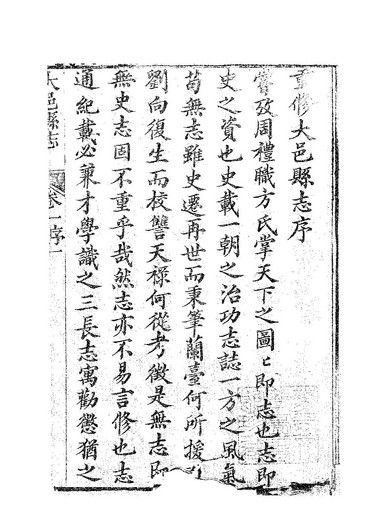 重修大邑縣志序
嘗攷周禮職方氏掌天下之圖〻即志也志即
史之資也史載一朝之治功志誌一方之風氣
苟無志雖史遷再世而秉筆蘭臺何所援
劉向復生而校讐天祿何從考徵是無志即
無史志固不重乎哉然志亦不易言修也志
通紀載必兼才學識之三長志寓勸懲猶之
大邑縣志 卷一序一